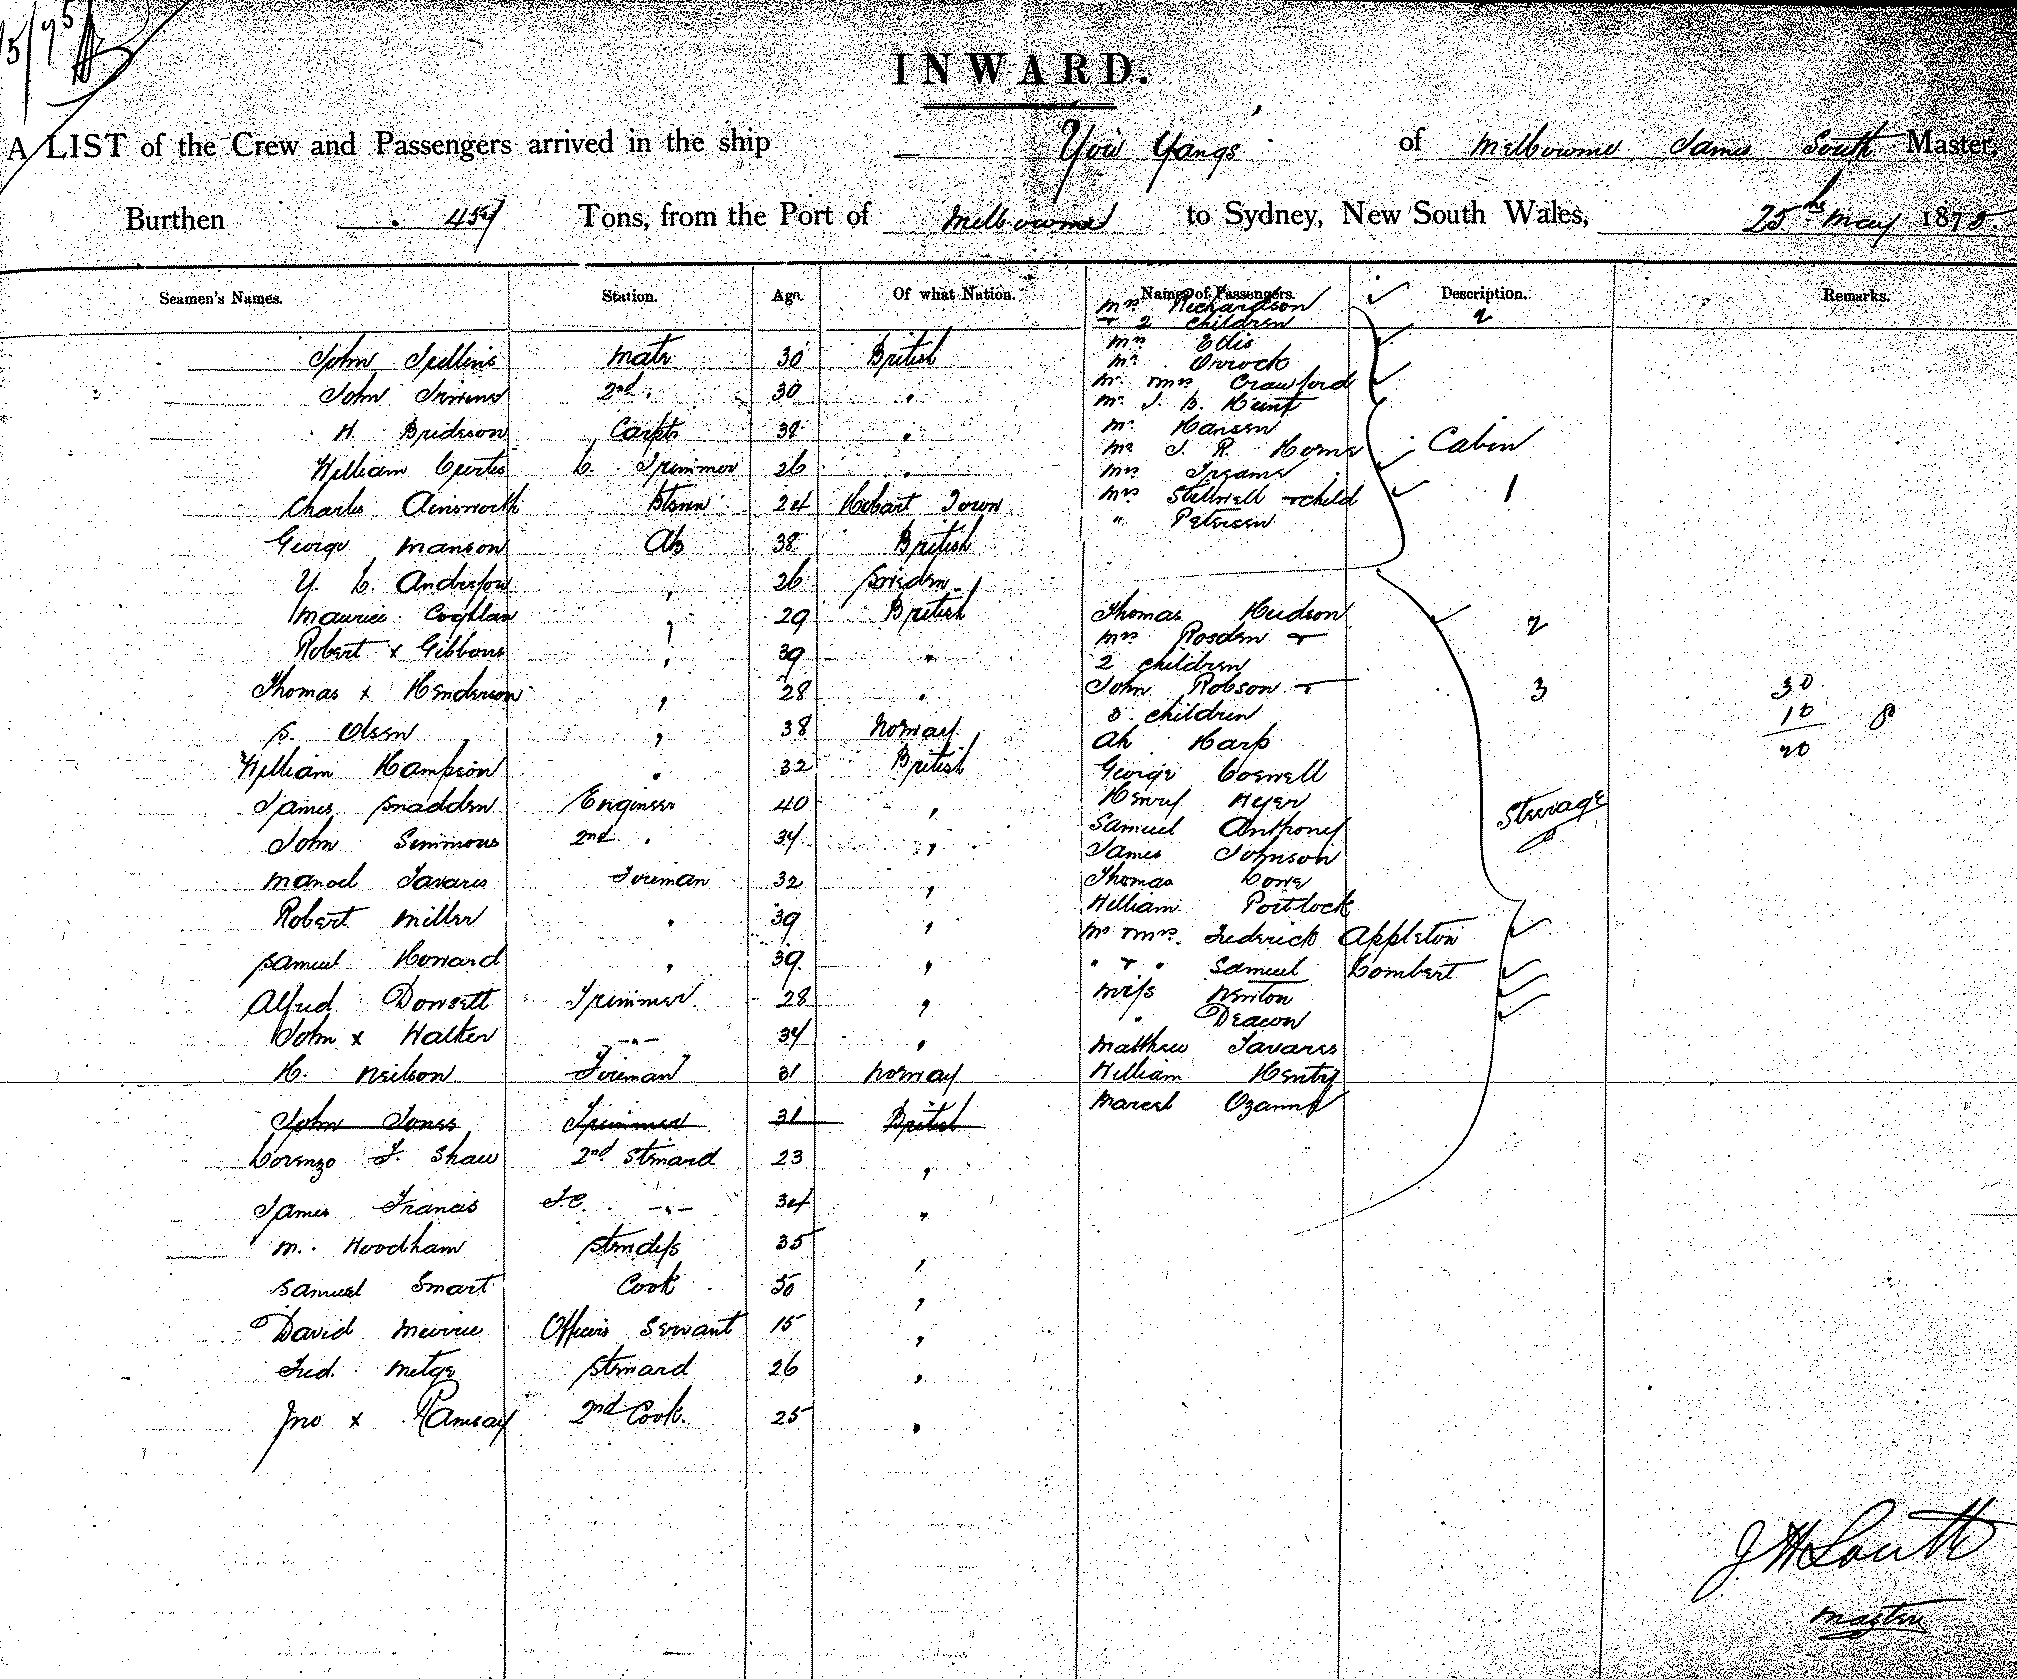 15/95
INWARD.
A LIST of the Crew and Passengers arrived in the ship You Yangs of Melbourne James South Master,
Burthen 459 Tons, from the Port of Melbourne to Sydney, New South Wales, 25th May 1875.
Seamen's Names. Station. Age. Of what Nation. Names of Passengers. Description. Remarks.
Mrs Richardson
+ 2 children 2
John Mate 30 British
Mrs Ellis
Mr Orrock
John 2nd 30 "
Mr + Mrs Crawford
Mr J. B. Hunt
H. Brideson Carptr 38 "
Mr Hansen
Mr J. R. Horne Cabin
William Curtis L. Trimmer 26 "
Mrs
Charles Ainsworth Stewn 24 Hobart Town
Mrs Stillwell + child 1
" Petersen
George Manson AB 38 British
Y. L. Anderson " 26 Sweden
Maurice Coghlan " 29 British
Thomas Hudson
Robert x Gibbons " 39 "
Mrs Rosden + 2
2 children
Thomas x Henderson " 28 "
John Robson + 3
3 children
S. Olsen " 38 Norway
Ah Harp
William Hampson " 32 British
George Coswell
James Snadden Engineer 40 "
Henry Heyer
Steerage
John Simmons 2nd " 34 "
Samuel Anthony
James Johnson
Manoel Tavares Fireman 32 "
Thomas Lowe
Robert Miller " 39 "
William Portlock
Mr + Mrs. Frederick Appleton
Samuel Howard " 39 "
" + " Samuel Lombert
Alfred Dowsett Trimmer 28 "
Miss Newton
" Deacon
John x Walker -"- 34 "
Matthew Tavares
H. Neilson Fireman 31 Norway
William Henty
Marcel Ozanne
John Jones Trimmer 31 British
Lorenzo F. Shaw 2nd Steward 23 "
James Francis F.C. -"- 34 "
M. Woodham Stewdess 35 "
Samuel Smart Cook 50 "
David Officers Servant 15 "
Fred. Metge Steward 26 "
Jno x Ramsay 2nd Cook. 25 "
30
10
20
J H South
Master